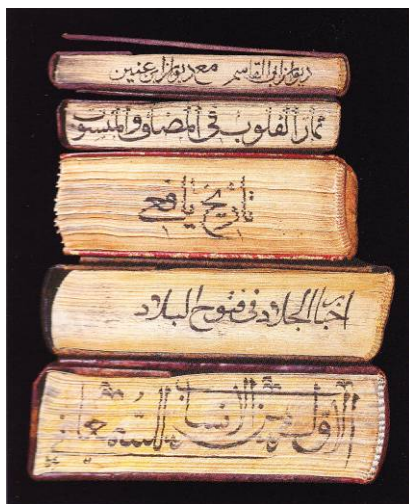 ديوان ابي القاسم مع ديوان ابن عنين
ثمار القلوب في المضاف والمنسوب
تاريخ يافعي
اخبار الجلاد في فتوح البلاد
الاول من الانساب